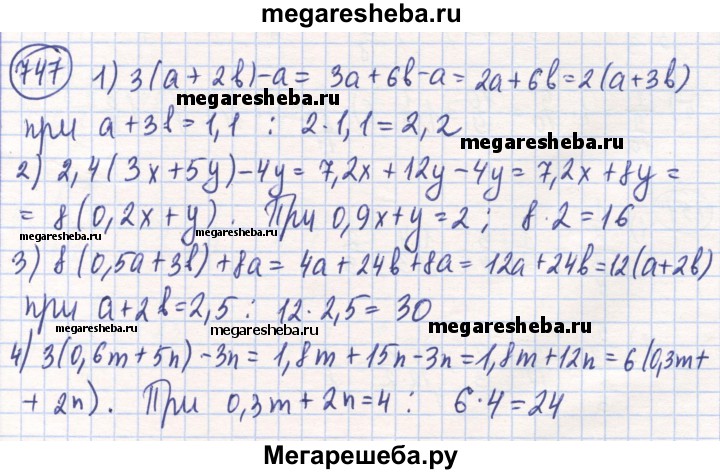 megaresheba.ru
747 1) 3(a + 2b) - a = 3a + 6b - a = 2a + 6b = 2(a+3b)
megaresheba.ru
при a + 3b = 1,1 : 2·1,1 = 2,2
megaresheba.ru
2) 2,4(3x + 5y) - 4y = 7,2x + 12y - 4y = 7,2x + 8y =
= 8(0,2x + y). При 0,9x + y = 2; 8·2 = 16
megaresheba.ru megaresheba.ru megaresheba.ru
3) 8(0,5a + 3b) + 8a = 4a + 24b + 8a = 12a + 24b = 12(a+2b)
при a + 2b = 2,5 : 12·2,5 = 30
megaresheba.ru megaresheba.ru megaresheba.ru
4) 3(0,6m + 5n) - 3n = 1,8m + 15n - 3n = 1,8m + 12n = 6(0,3m +
+ 2n). При 0,3m + 2n = 4 : 6·4 = 24
Мегарешеба.ру